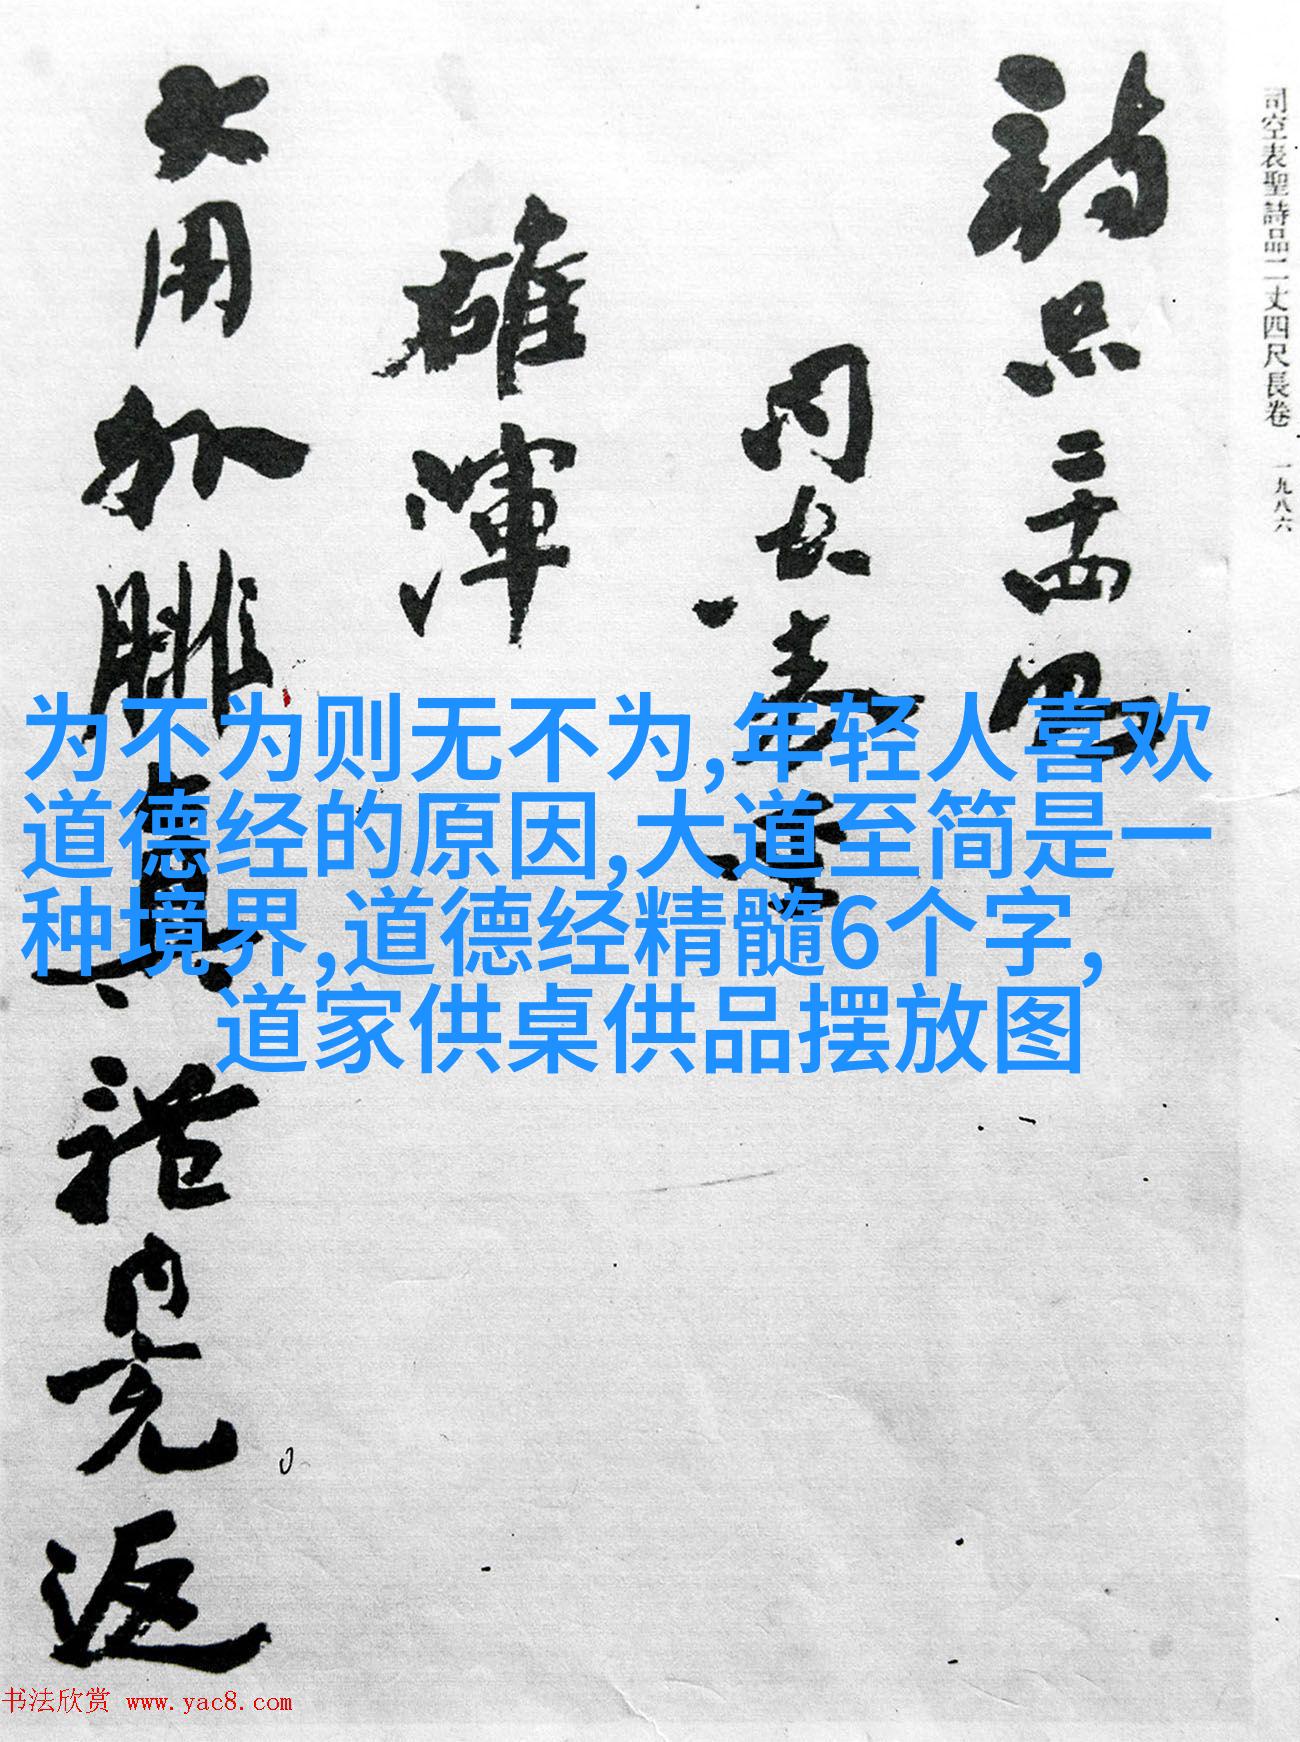 司空表聖詩品二丈四尺長卷 一九八六
詩品二十四
司空表聖
雄渾
大用外腓真體內充返
为不为则无不为,年轻人喜欢
道德经的原因,大道至简是一
种境界,道德经精髓6个字,
道家供桌供品摆放图
书法欣赏 www.yac8.com